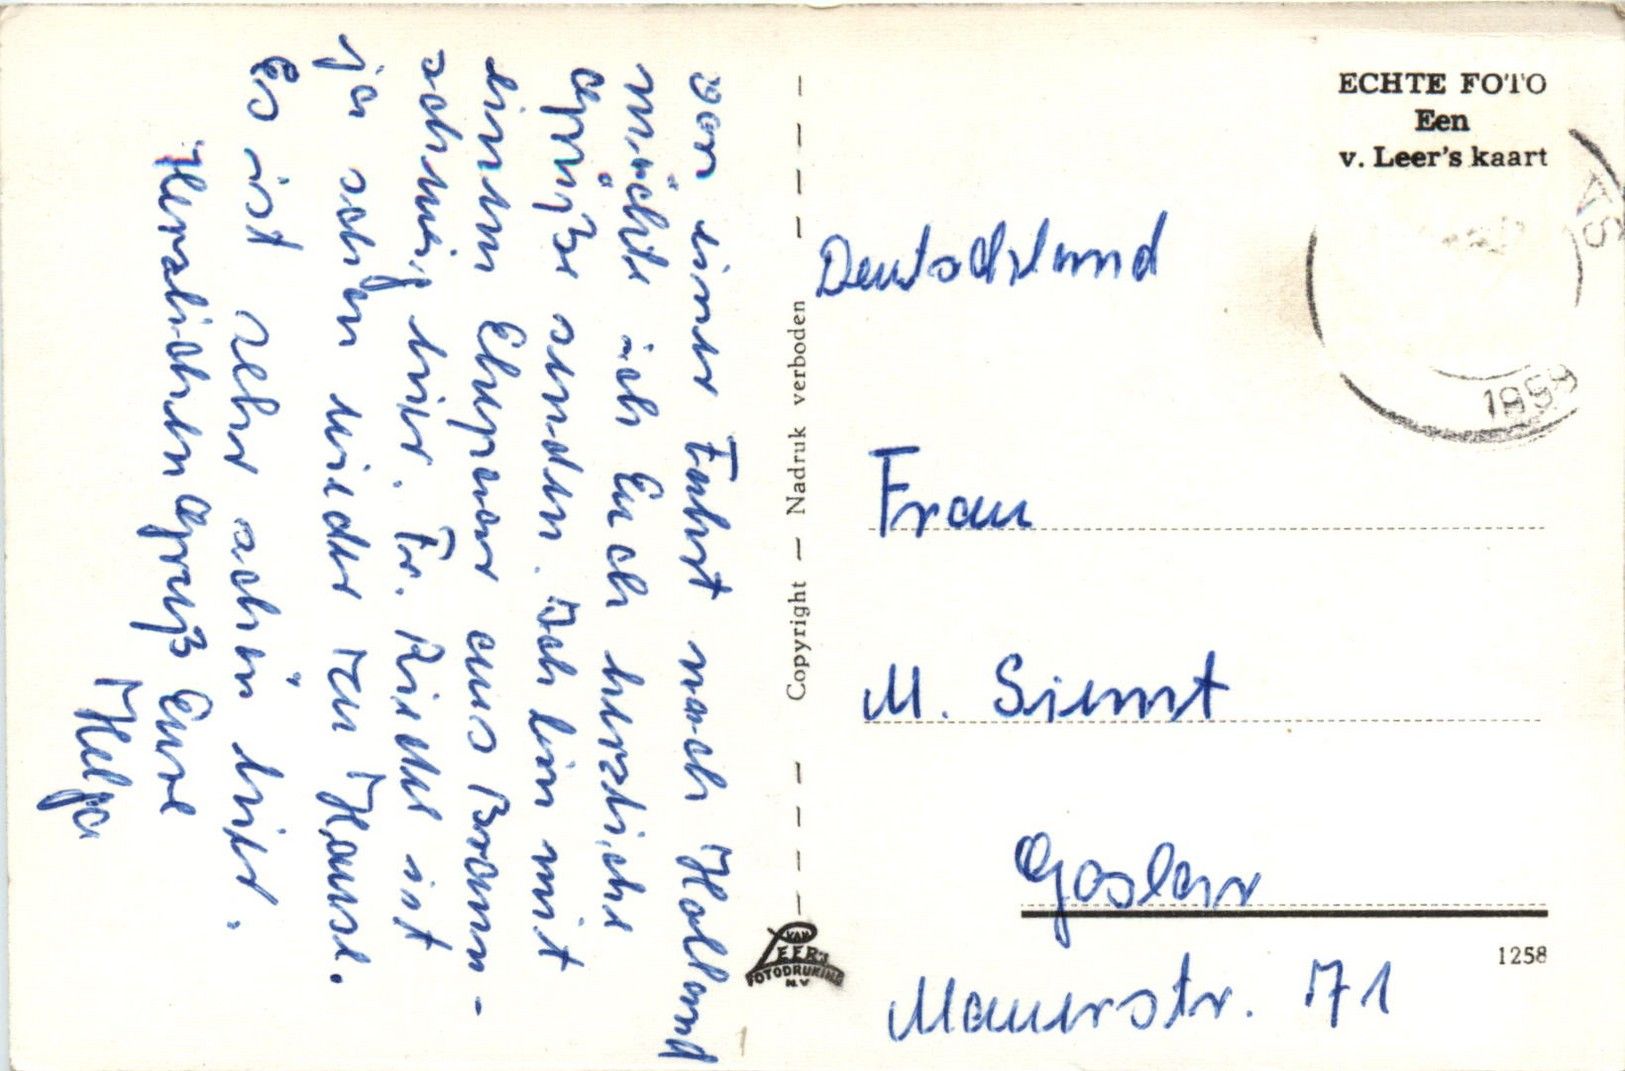 von einer Fahrt nach Holland
möchte ich Euch herzliche
Grüße senden. Ich bin mit
einem Ehepaar aus Braun-
schweig hier. Fr. Riedel ist
ja schon wieder zu Hause.
Es ist sehr schön hier.
Herzlichen Gruß Eure
Helga
Copyright — Nadruk verboden
VAN
LEER'S
FOTODRUKIND.
N.V
ECHTE FOTO
Een
v. Leer's kaart
1959
Deutschland
Frau
M. Siemt
Goslar
1258
Mauerstr. 71